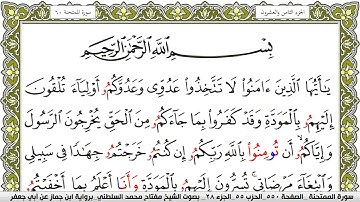 سورة الممتحنة ٦٠
الجزء الثامن والعشرون
بِسْمِ اللَّهِ الرَّحْمَٰنِ الرَّحِيمِ
يَٰٓأَيُّهَا الَّذِينَ ءَامَنُوا لَا تَتَّخِذُوا عَدُوِّى وَعَدُوَّكُمُۥٓ أَوْلِيَآءَ تُلْقُونَ
إِلَيْهِمُۥ بِالْمَوَدَّةِ وَقَدْ كَفَرُوا بِمَا جَآءَكُمُۥ مِنَ الْحَقِّ يُخْرِجُونَ الرَّسُولَ
وَإِيَّاكُمُۥٓ أَن تُومِنُوا بِاللَّهِ رَبِّكُمُۥٓ إِن كُنتُمُۥ خَرَجْتُمُۥ جِهَٰدًا فِى سَبِيلِى
وَابْتِغَآءَ مَرْضَاتِى تُسِرُّونَ إِلَيْهِمُۥ بِالْمَوَدَّةِ وَأَنَآ أَعْلَمُ بِمَآ أَخْفَيْتُمُۥ
سورة الممتحنة. الصفحة ٥٥٠. الحزب ٥٥. الجزء ٢٨. بصوت الشيخ مفتاح محمد السلطني. برواية ابن جماز عن أبي جعفر